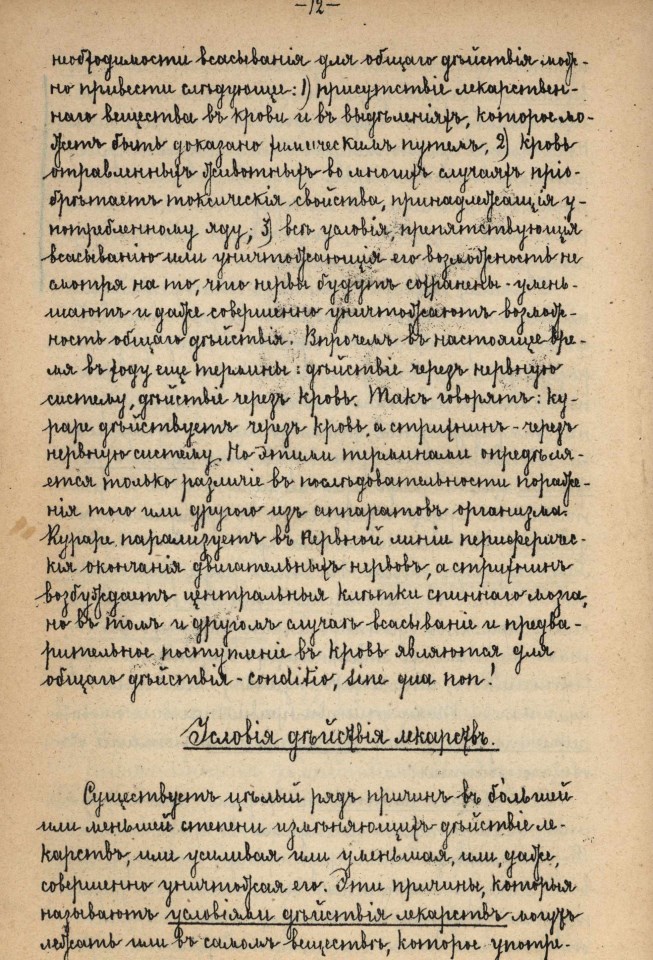 —12—
необходимости всасыванія для общаго дѣйствія мож-
но привести слѣдующе: 1) присутствіе лекарствен-
наго вещества въ крови и въ выдѣленіяхъ, которое мо-
жетъ быть доказано химическимъ путемъ, 2) кровь
отравленныхъ животныхъ во многихъ случаяхъ пріо-
брѣтаетъ токсическія свойства, принадлежащія у-
потребленному яду; 3) всѣ условія, препятствующія
всасыванію или уничтожающія его возможность не
смотря на то, что нервы будутъ сохранены - умень-
шаютъ и даже совершенно уничтожаютъ возмож-
ность общаго дѣйствія. Впрочемъ въ настоящее вре-
мя въ ходу еще термины: дѣйствіе черезъ нервную
систему, дѣйствіе черезъ кровь. Такъ говорятъ: ку-
раре дѣйствуетъ черезъ кровь, а стрихнинъ - черезъ
нервную систему. Но этими терминами опредѣля-
ется только различіе въ послѣдовательности пораже-
нія того или другого изъ аппаратовъ организма.
Кураре парализуетъ въ первной линіи периферичес-
кія окончанія двигательныхъ нервовъ, а стрихнинъ
возбуждаетъ центральныя клѣтки спиннаго мозга,
но въ томъ и другомъ случаѣ всасываніе и предва-
рительное поступленіе въ кровь являются для
общаго дѣйствія - conditio, sine qua non!
Условія дѣйствія лекарствъ.
Существуетъ цѣлый рядъ причинъ въ бо́льшей
или меньшей степени измѣняющихъ дѣйствіе ле-
карствъ, или усиливая или уменьшая, или, даже,
совершенно уничтожая его. Эти причины, которыя
называютъ условіями дѣйствія лекарствъ могутъ
лежать или въ самомъ веществѣ, которое употре-